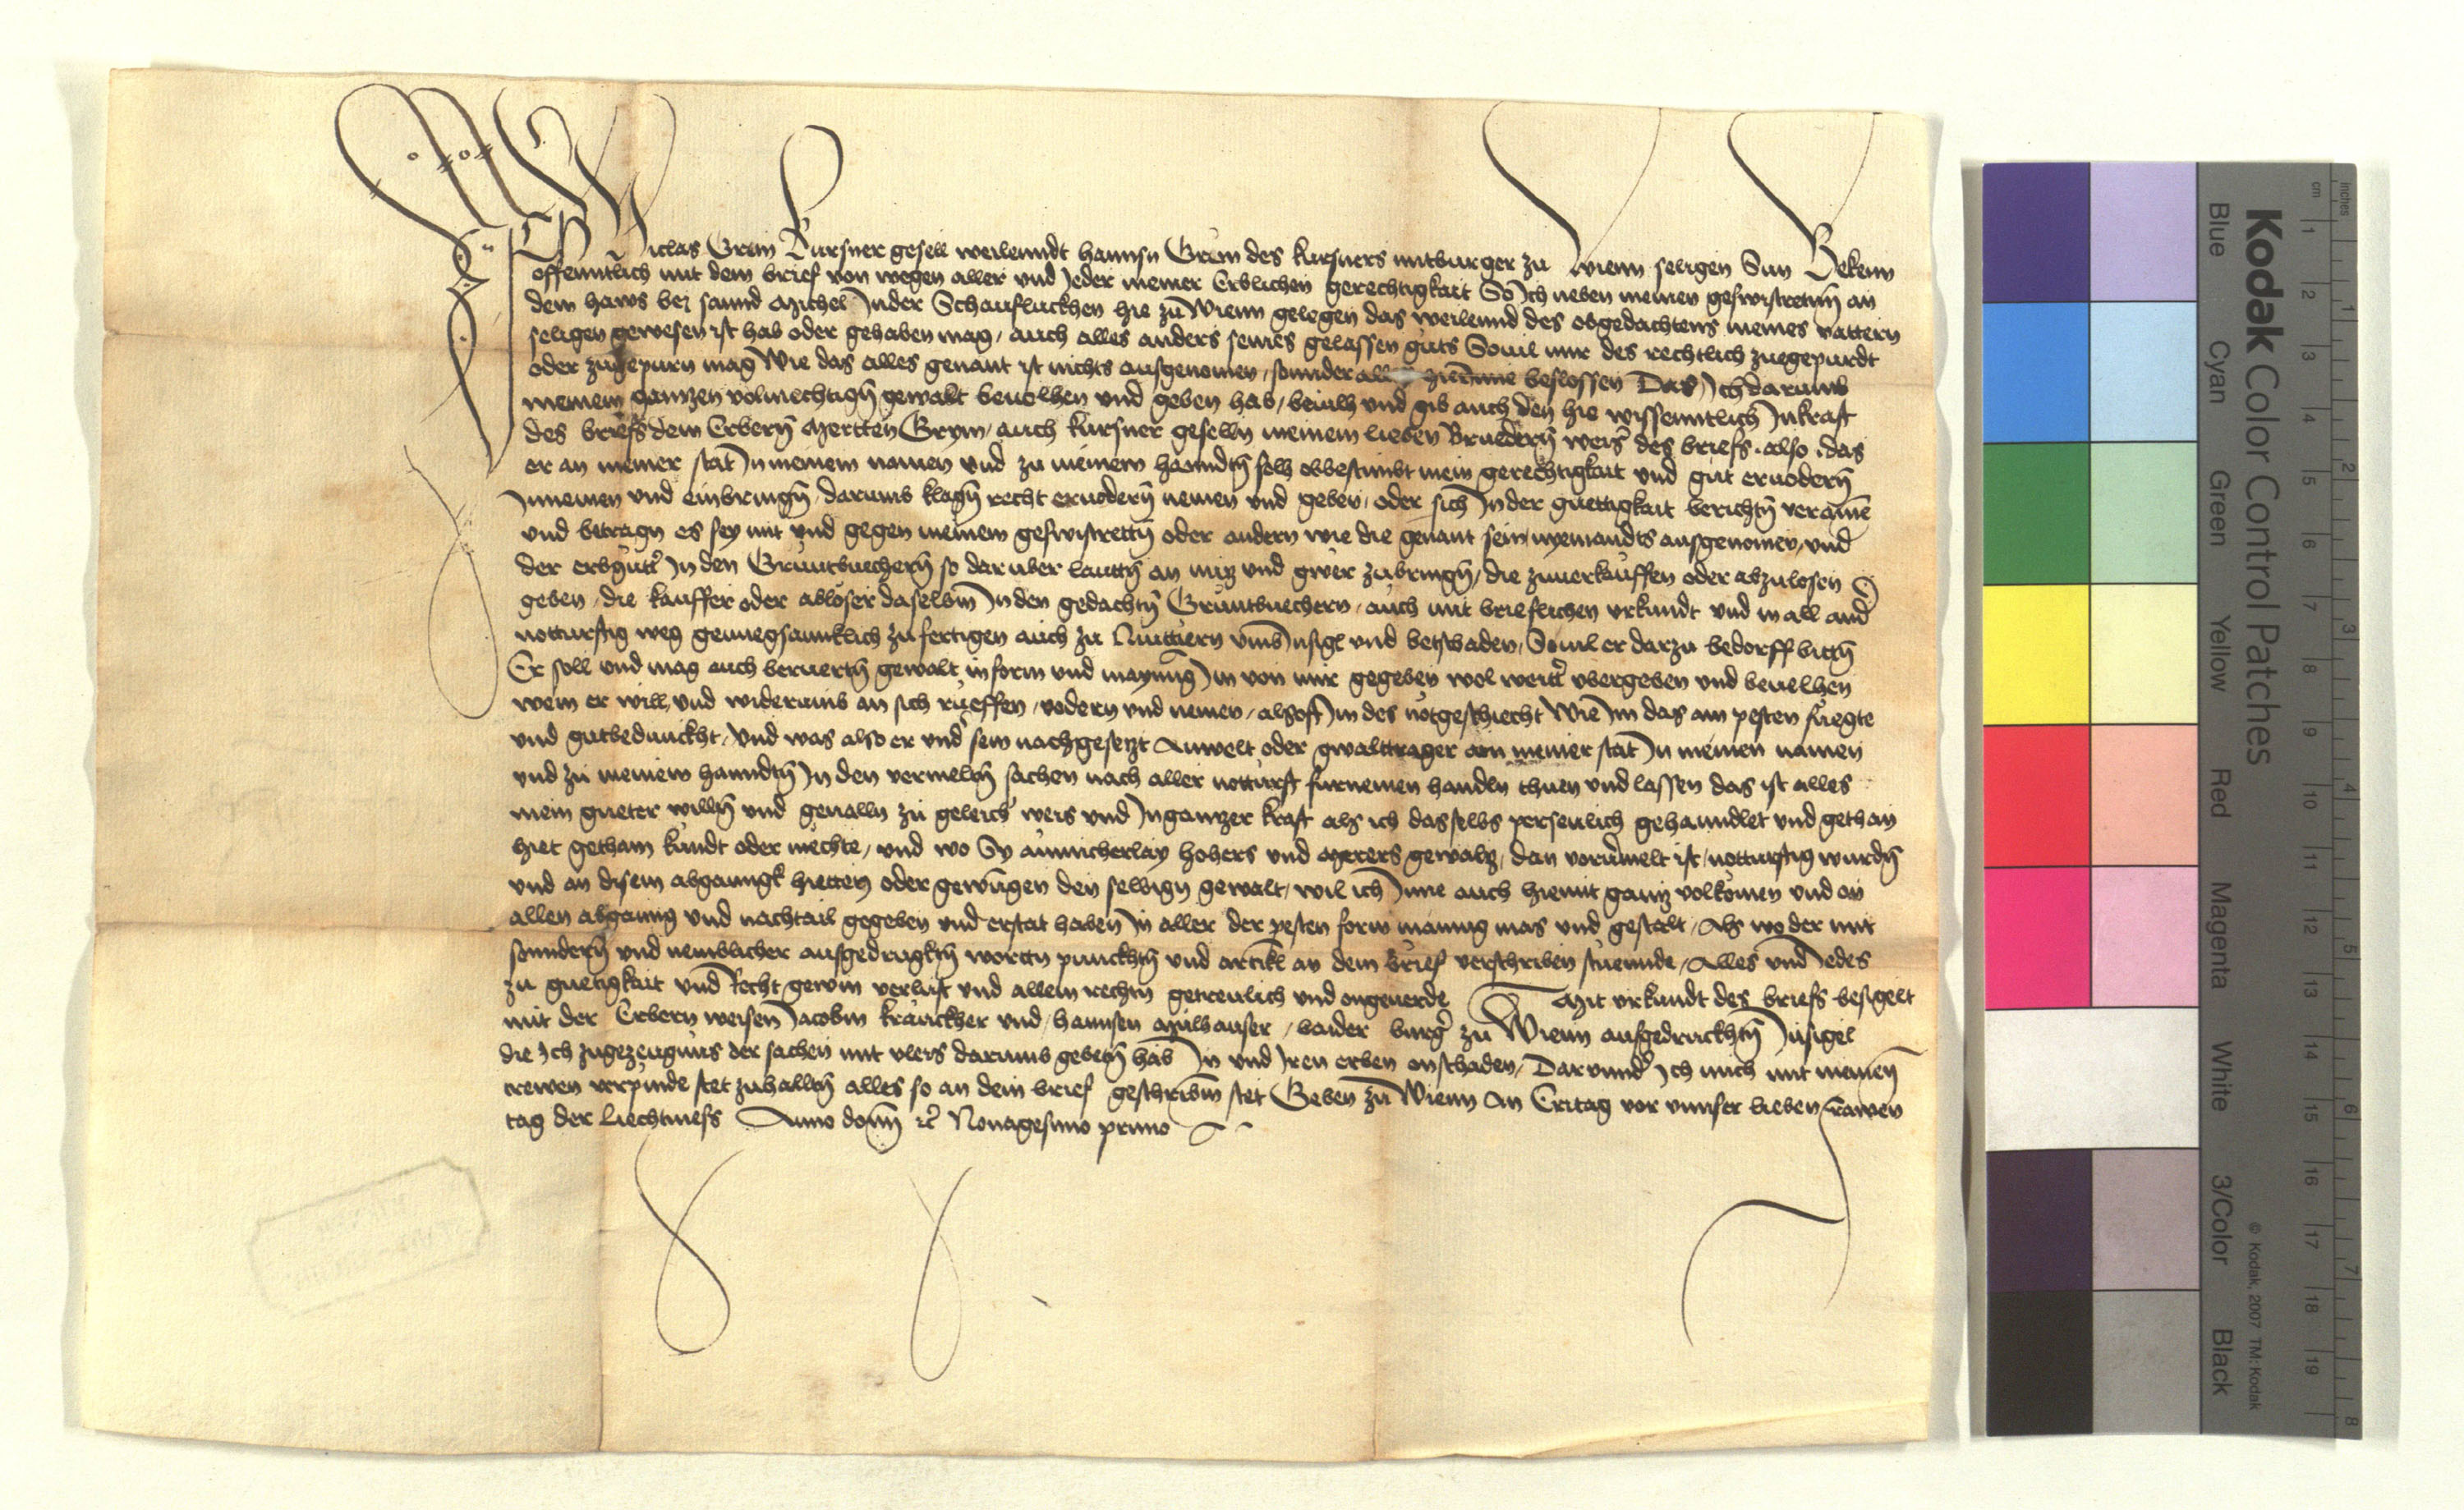 Ich Niclas Grün Kursner gesell weilenndt hannsn Grün des kursners mitburger zu Wienn seligen Sun Bekenn
offenntlich mit dem brief von wegen aller und yeder meiner Erblichen gerechtigkait So Ich neben meinen geswistretten an
dem haws bei sannd Michel In der Schauflluckhen hie zu Wienn gelegen das weilennd des obgedachtens meines vattern
seligen gewesen ist hab oder gehaben mag / auch alles anders seines gelassen guts Souil mir des rechtlich zuegepurdt
oder zugepurn mag Wie das alles genant ist nichts ausgenomen / sonnder hierinne beslossen Das Ich darumb
meinem ganntzen volmechtign gewalt beuolhen und geben hab / beuilh und gib auch den hie wissenntlich In kraft
des briefs dem Erbern Mertten Gryn / auch kursner geselln meinem lieben Bruedern weis des briefs . also . das
er an meiner stat In meinem namen und zu meinem hanndtn solh obbestimbt mein gerechtigkait und gut eruodern
Innemen und einbringn / darumb klagn recht eruodern nemen und geben / oder sich In der guettigkait berichtn veraine
und betragn es sey mit und gegen meinem geswistrettn oder andern wie die genant sein nyemandts ausgenomen / und
der erbgutt In den Gruntbuechern so daruber lauttn an nutz und gwer zubringn / die zuuerkauffen oder abzulosen
geben / die kauffer oder abloser daselbm In den gedachtn Gruntbuechern / auch mit brieflichen urkundt und in all and
notturftig weg genuegsamklich zu fertigen auch zu umb Insigl und betzwaden / Souil er darzu bedorff bittn
Er soll und mag auch beruertn gewalt in form und maynung Im von mir gegeben wol weitt ubergeben und beuelhen
wem er will / und widerumb an sich rueffen / vodern und nemen / alsoft Im des notgeschiecht Wie Im das am pesten fuegte
und gutbedunckht / Und was also er und sein nachgesetzt Anwelt oder gwalttrager an meiner stat In meinen namen
und zu meinem hanndtn In den vermeltn sachen nach aller notturft furnemen handln thuen und lassen das ist alles
mein gueter willn und geualln zu geleich weis und In ganntzer kraft als ich dasselbs personlich gehanndlet und gethan
hiet gethain kundt oder mechte / und wo Sy ainicherlay hohers und Merers gewaltz / dan vorumelt ist / notturftig wurdn
und an disem abganngk hietten oder gewungen den selbign gewalt / wil ich Inne auch hiemit gantz volkomen und an
allen abganng und nachtail gegeben und erstat haben In aller der pesten form mainung mas und gestalt / Als wo der mit
sonndern und nemblicher ausgedrugktn wortn punckhtn und artikl an dem brief verschriben stuennde / Alles und yedes
zu guetigkait und Recht gewin verlust und allem rechtn getreulich und ongeuerde Mit urkundt des briefs besigelt
mit der Erbern weisen Jacobm kranckher und / hannsen Mulhauser / baider burg zu Wienn aufgedruckhtn Insigel
die Ich zugezeugnus der sachen mit vleis darumb gebetn hab In und Iren erben onschaden / Darunnd Ich mich mit meinen
trewen verpinde stet zuhalltn alles so an dem brief geschribm stet Geben zu Wienn An Eritag vor unnser lieben frawen
tag der Liechtmess Anno domi etc Nonagesimo primo
Kodak Color Control Patches
Blue Cyan Green Yellow Red Magenta White 3/Color Black
© Kodak, 2007 TM: Kodak
inches 1 2 3 4 5 6 7 8
cm 1 2 3 4 5 6 7 8 9 10 11 12 13 14 15 16 17 18 19